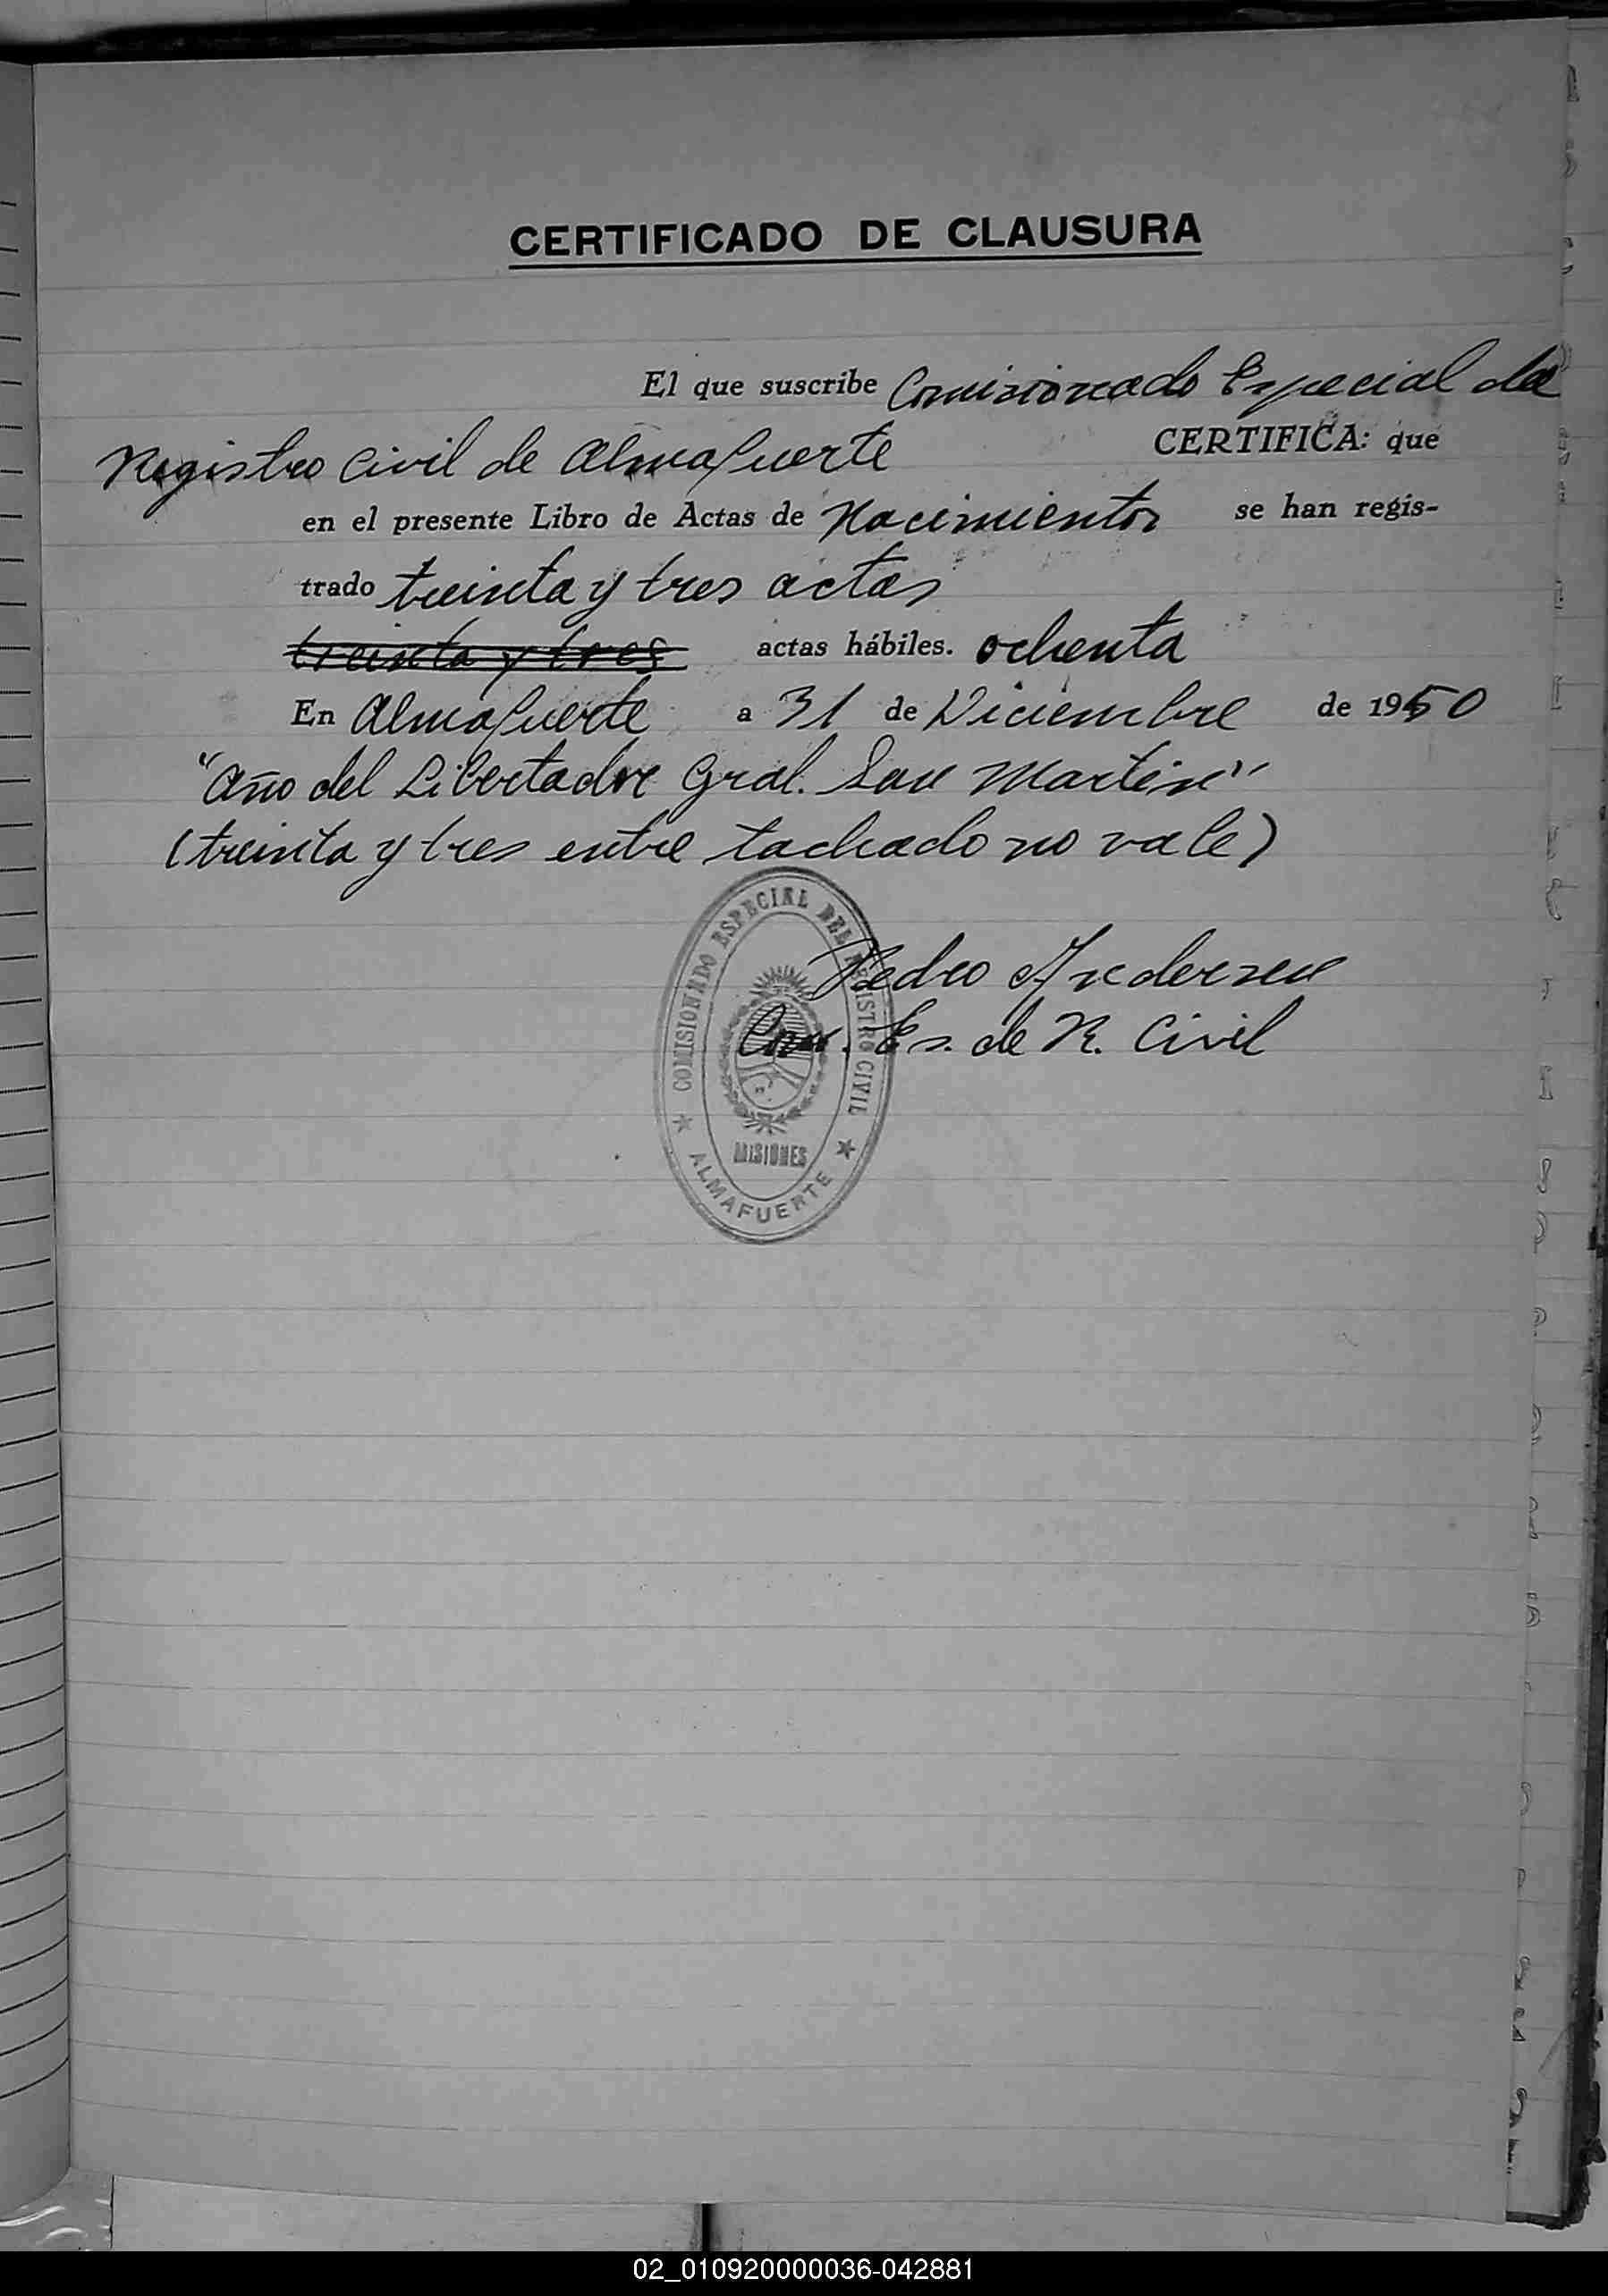 CERTIFICADO DE CLAUSURA
El que suscribe Comisionado Especial del
Registro Civil de Almafuerte CERTIFICA: que
en el presente Libro de Actas de Nacimientos se han regis-
trado treinta y tres actas
treinta y tres actas hábiles. ochenta
En Almafuerte a 31 de Diciembre de 1950
"Año del Libertador Gral. San Martin"
(treinta y tres entre tachado no vale)
Pedro Andersen
Com. Es. de R. Civil
COMISIONADO ESPECIAL DEL REGISTRO CIVIL
MISIONES
ALMAFUERTE
02_010920000036-042881